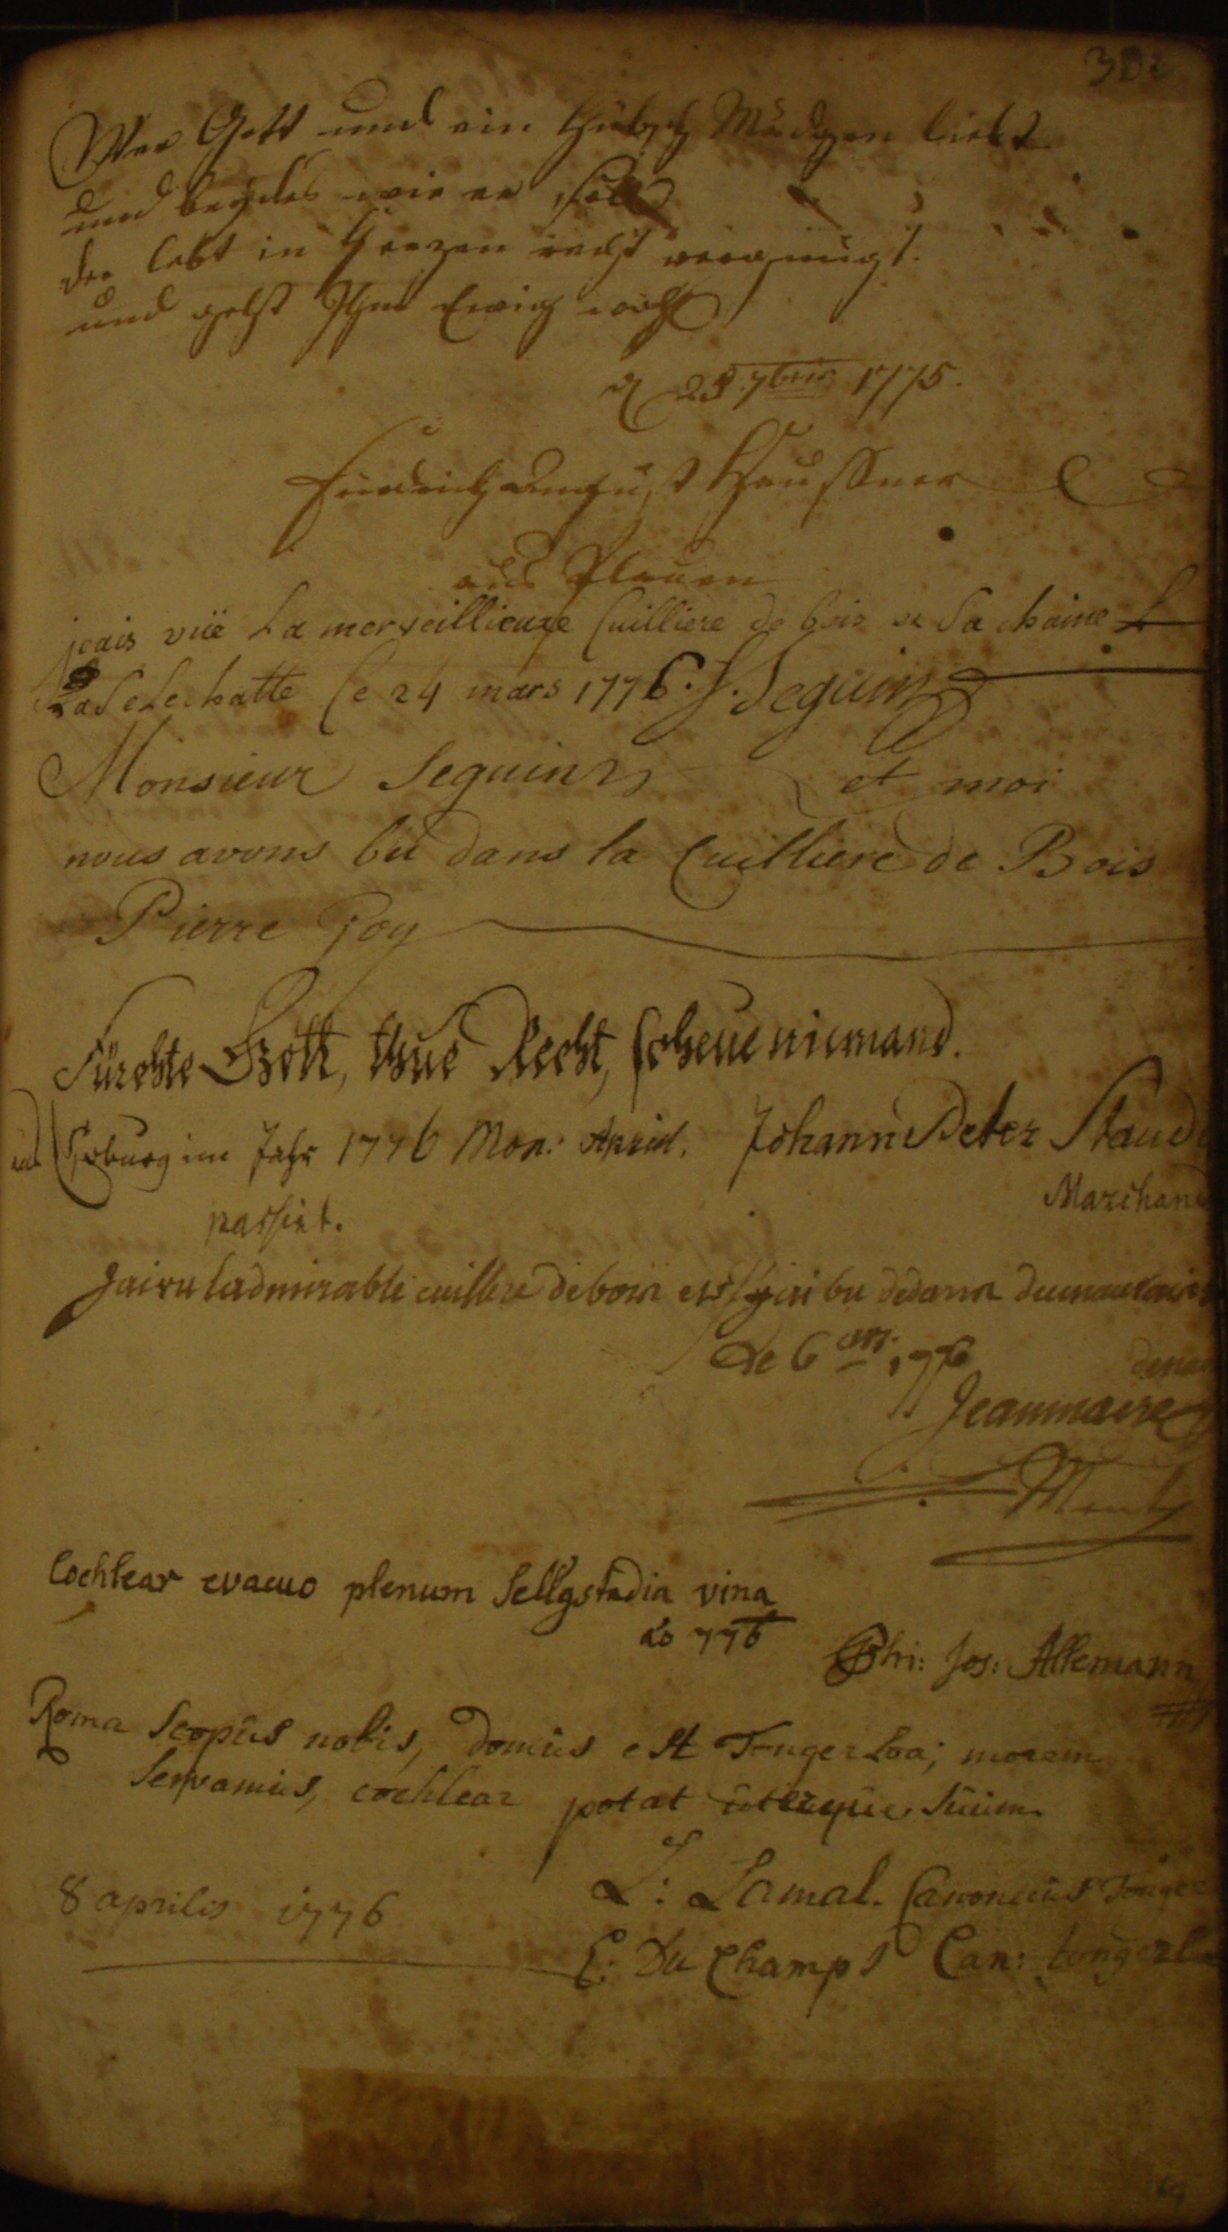 382
Wer Gott und ein hübsch Mädgen liebt
und beydes wie er soll
der lebt in Herzen recht vergnügt.
und geht Ihm Ewig wohl
d 25 7bris 1775.
Friedrich August Haussner
aus Plauen
jeais vüe La merveillieuze Cuilliere de bois et Sa chaine
Le 24 mars 1776. J. Seguin
Monsieur Seguin et moi
nous avons bu dans la Cuilliere de Bois
Pierre Goy
Fürchte Gott, thue Recht, scheue niemand.
Coburg im Jahr 1776 Mon: April. Johann Peter Staude
Marchand
passirt.
Jai vu ladmirable cuillere de bois et jai bu dedans
Le 6 1776
Jeanmaire
Cochlear evacuo plenum Sellgstadia vina
ao 776
Phi: Jos: Allemann
Roma Scopus nobis, domus est Tongerloa; morem
Servamus, cochlear potat uterque Suum
8 aprilis 1776
L: Lamal. Canonicus Tonger
E: Du Champs Can: tongerlo